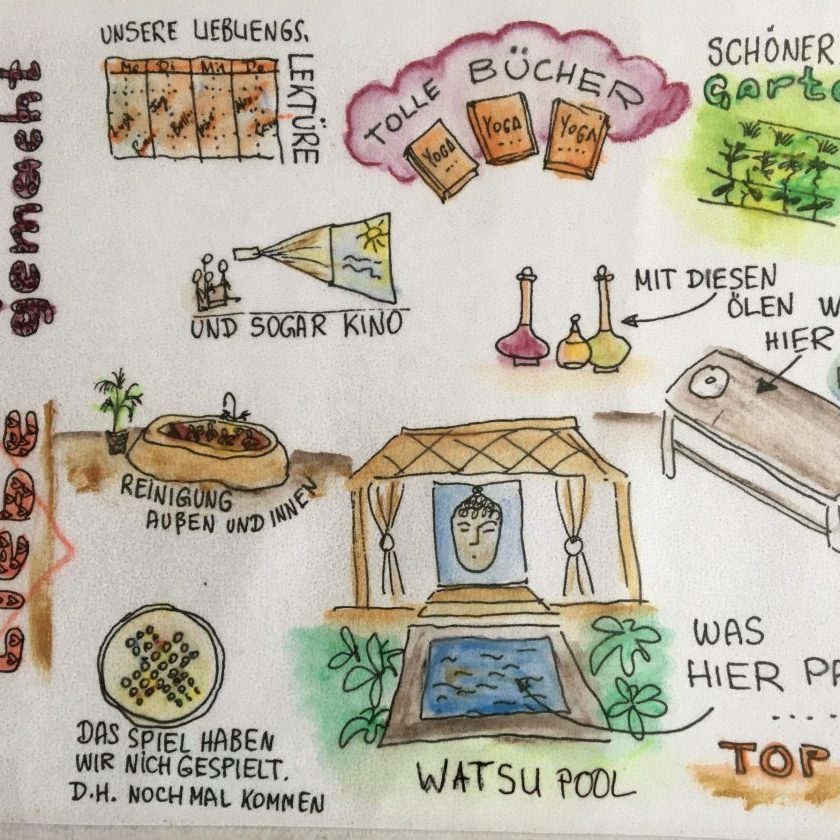 UNSERE LIEBLIENGS.
LEKTÜRE
Mo Di Mi Do
TOLLE BÜCHER
YOGA
YOGA
YOGA
SCHÖNER
Garte
gemacht
UND SOGAR KINO
MIT DIESEN
ÖLEN W
HIER
REINIGUNG
AUßEN UND INNEN
Liebe
WAS
HIER PA
....
TOP
DAS SPIEL HABEN
WIR NICH GESPIELT.
D.H. NOCHMAL KOMMEN
WATSU POOL